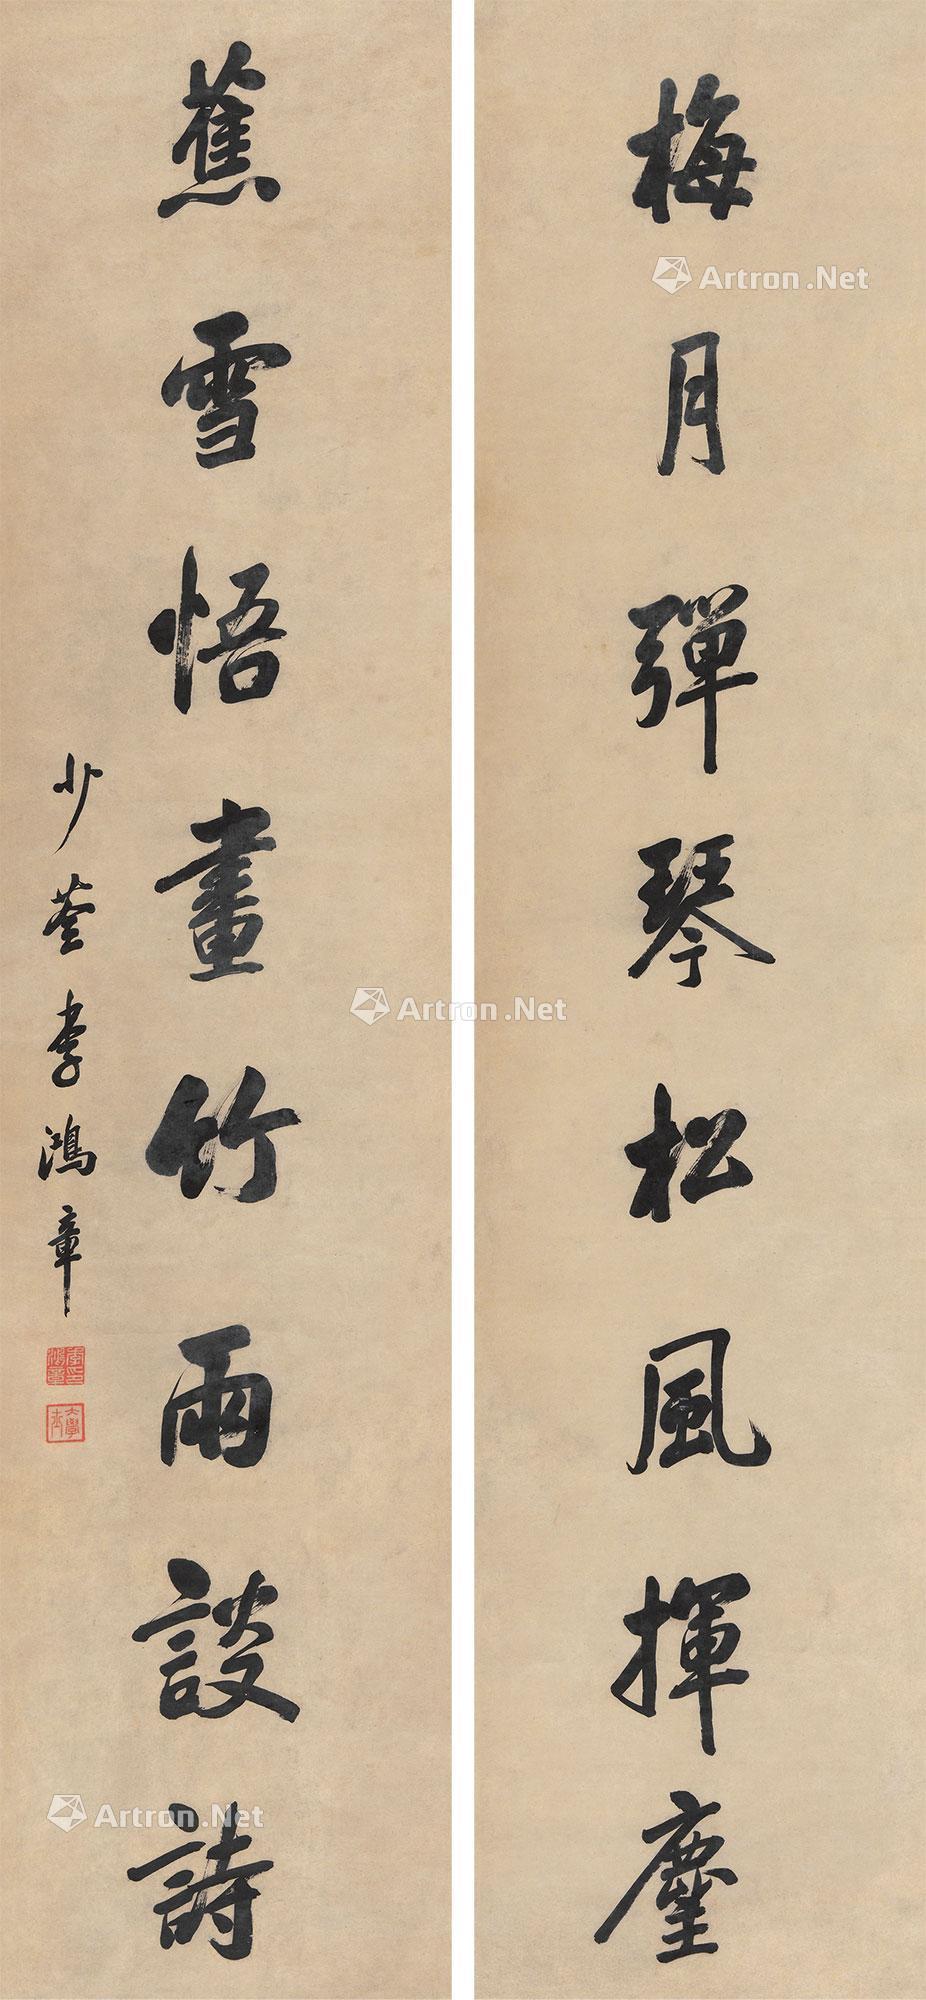 梅月彈琴松風揮麈
蕉雪悟畫竹雨談詩
少荃李鴻章
李鴻章印
大學士
Artron.Net
Artron.Net
Artron.Net